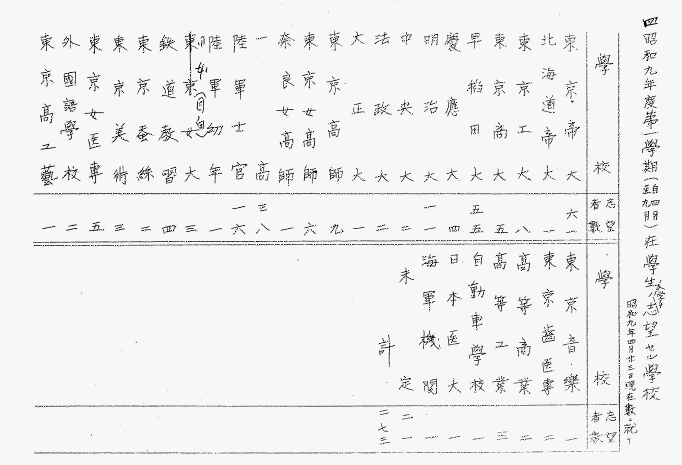 四 昭和九年度第一學期(自四月至九月)在學生入學ヲ志望セル學校
昭和九年四月廿三日現在數
學校 志望者數
東京帝大 六一
北海道帝大 一
東京工大 八
東京商大 五
早稻田大 五五
慶應大 四
明治大 一一
中央大 二
法政大 二
大正大 一
東京高師 九
東京女高師 六
奈良女高師 一
一高 三八
陸軍士官 一六
陸軍幼年 一
東京女大 三
鉄道教習 四
東京蚕絲 二
東京美術 三
東京女医專 五
外國語學校 二
東京高工藝 一
學校 志望者數
東京音樂 一
東京齒医專 二
高等商業 二
高等工業 三
自動車學校 一
日本医大 一
海軍機関 一
未定 二一
計 二七三